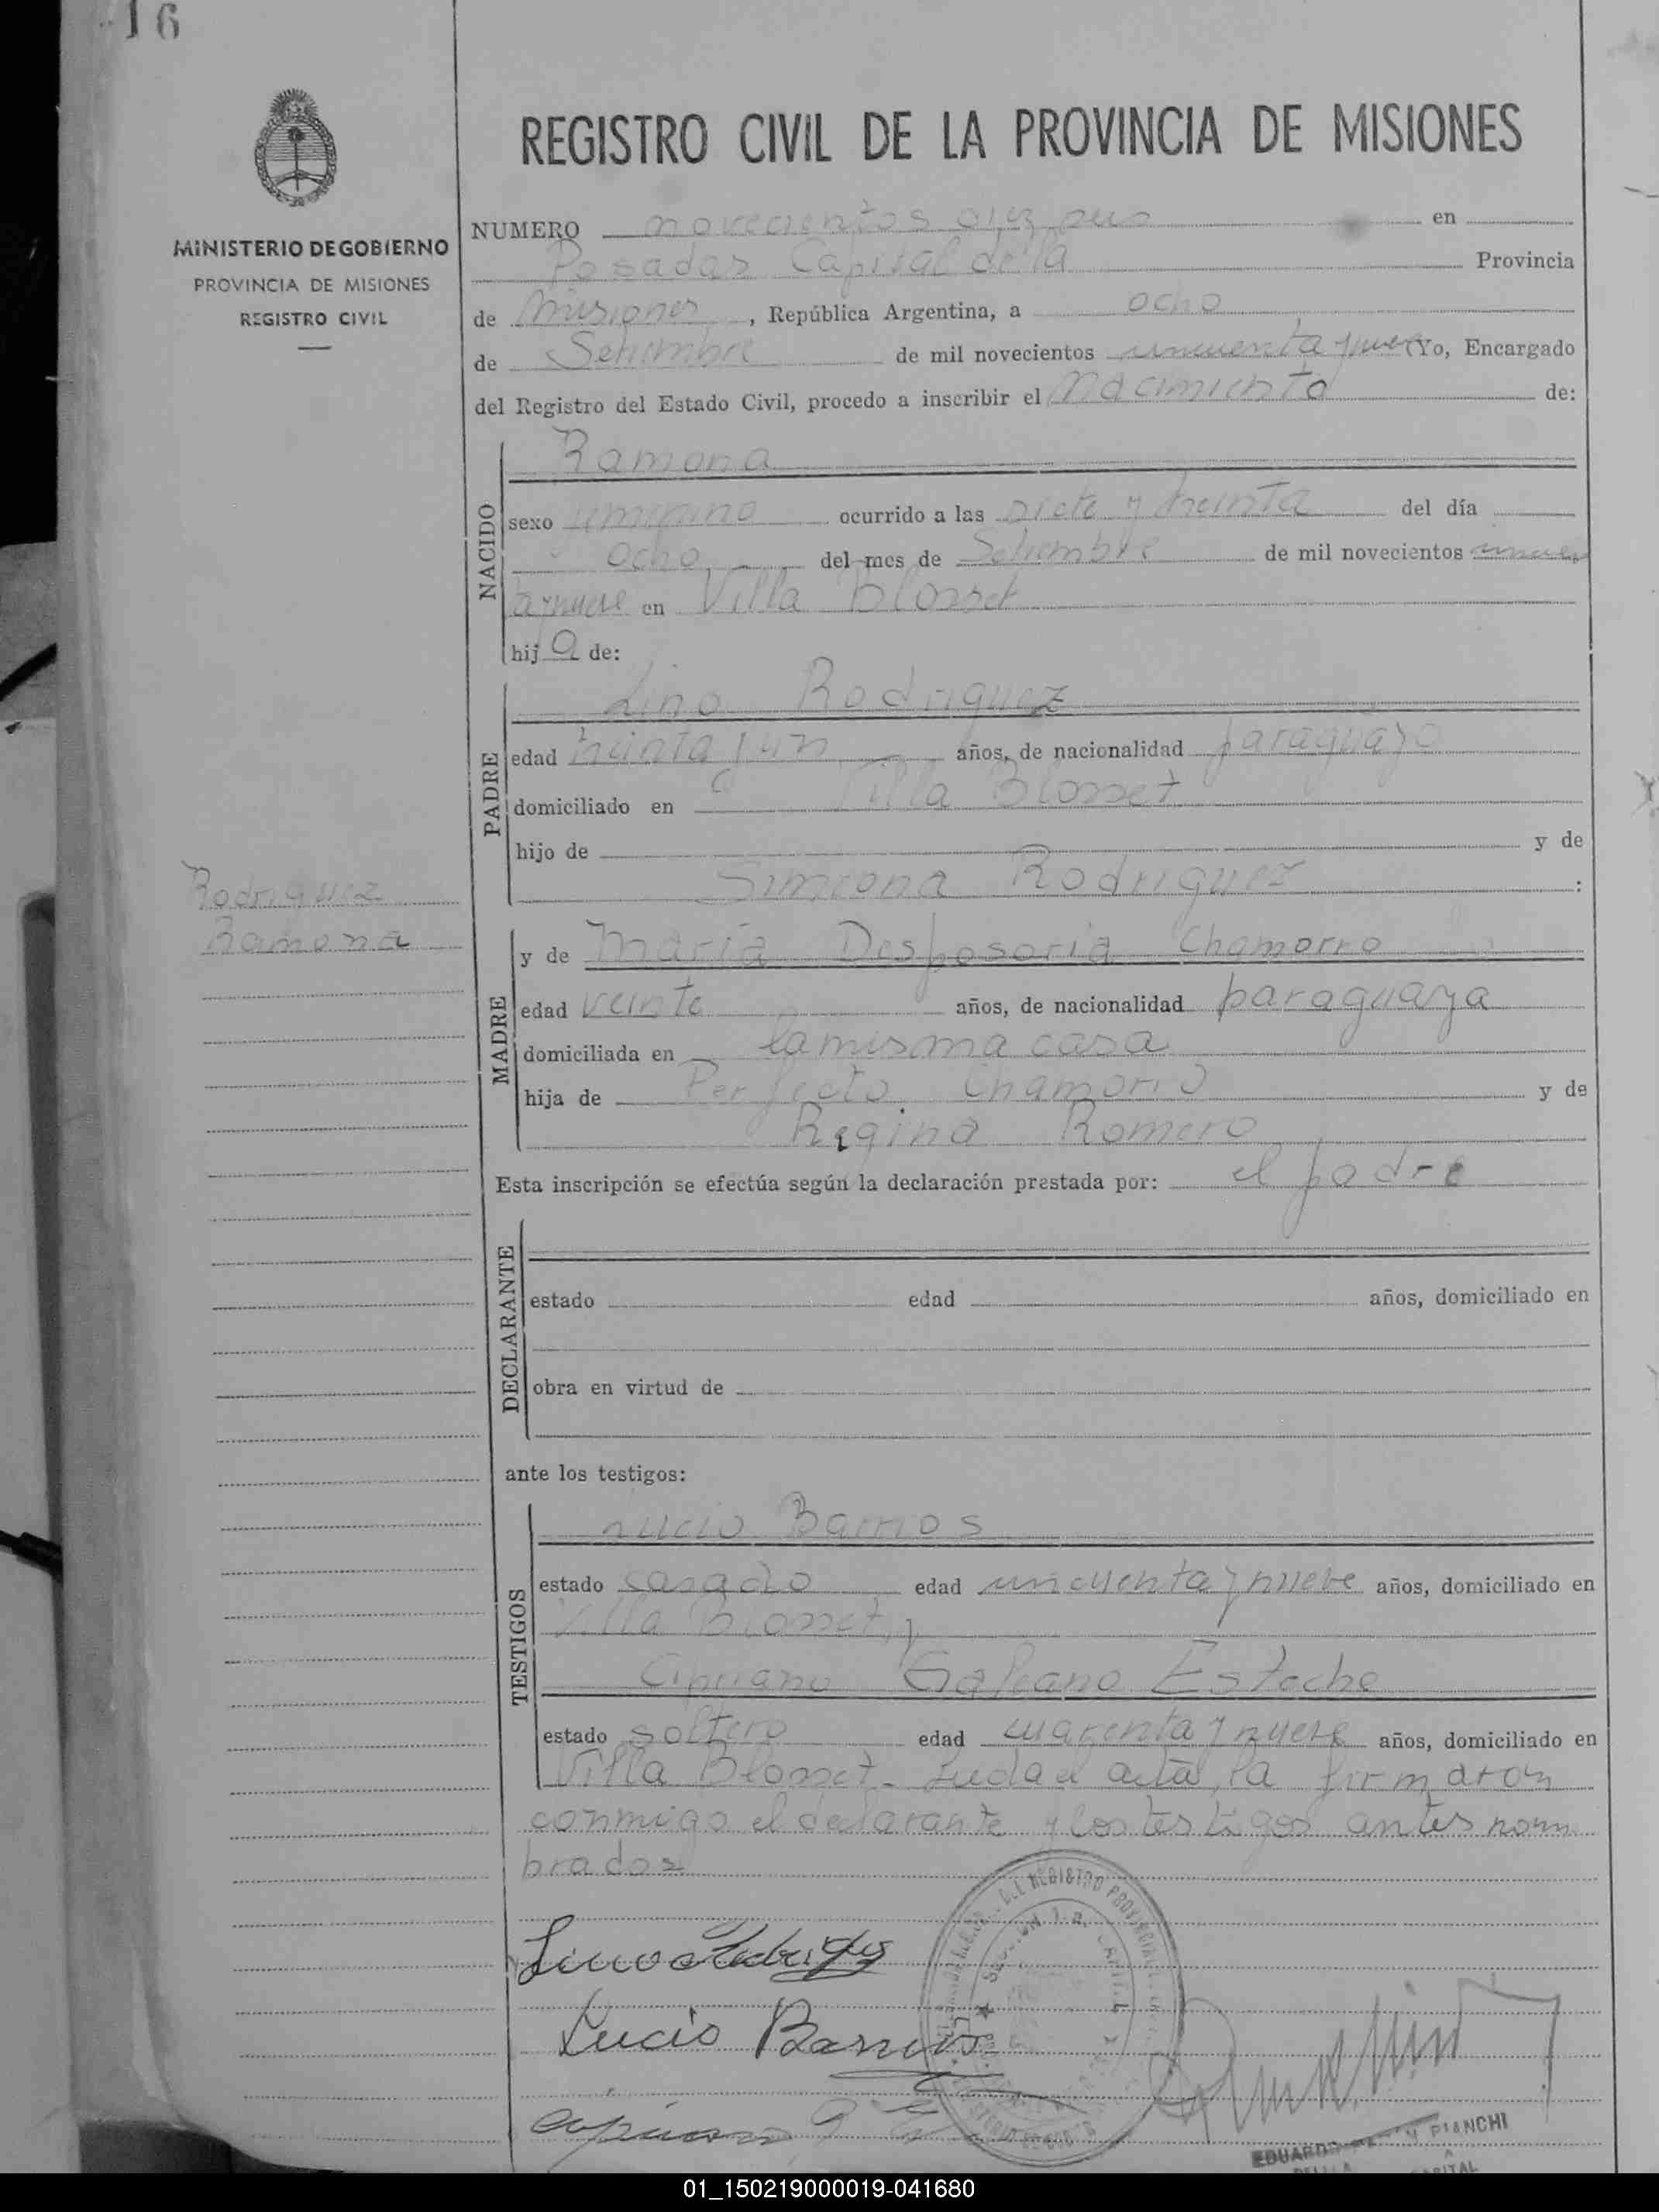 16
REGISTRO CIVIL DE LA PROVINCIA DE MISIONES
MINISTERIO DE GOBIERNO
PROVINCIA DE MISIONES
REGISTRO CIVIL
NUMERO novecientos diez en
Posadas Capital de la Provincia
de Misiones, República Argentina, a ocho
de Setiembre de mil novecientos cincuenta y nueve Yo, Encargado
del Registro del Estado Civil, procedo a inscribir el nacimiento de:
NACIDO
Ramona
sexo femenino ocurrido a las siete y treinta del día
ocho del mes de Setiembre de mil novecientos cincuen
ta y nueve en Villa Blosset
hija de:
PADRE
Lino Rodriguez
edad treinta y un años, de nacionalidad paraguayo
domiciliado en Villa Blosset
hijo de y de
Simeona Rodriguez :
Rodriguez
Ramona
MADRE
y de Maria Desposoria Chamorro
edad veinte años, de nacionalidad paraguaya
domiciliada en la misma casa
hija de Perfecto Chamorro y de
Regina Romero
Esta inscripción se efectúa según la declaración prestada por: el padre
DECLARANTE
estado edad años, domiciliado en
obra en virtud de
ante los testigos:
TESTIGOS
Lucio Barrios
estado casado edad cincuenta y nueve años, domiciliado en
Villa Blosset, y
Cipriano Galeano Esteche
estado soltero edad cuarenta y nueve años, domiciliado en
Villa Blosset. Leida el acta, la firmaron
conmigo el declarante y los testigos antes nom
brados
Lino Rodriguez
Lucio Barrios
DEL REGISTRO PROVINCIAL
SECCION 1a. CAPITAL
EDUARDO BIANCHI
01_150219000019-041680